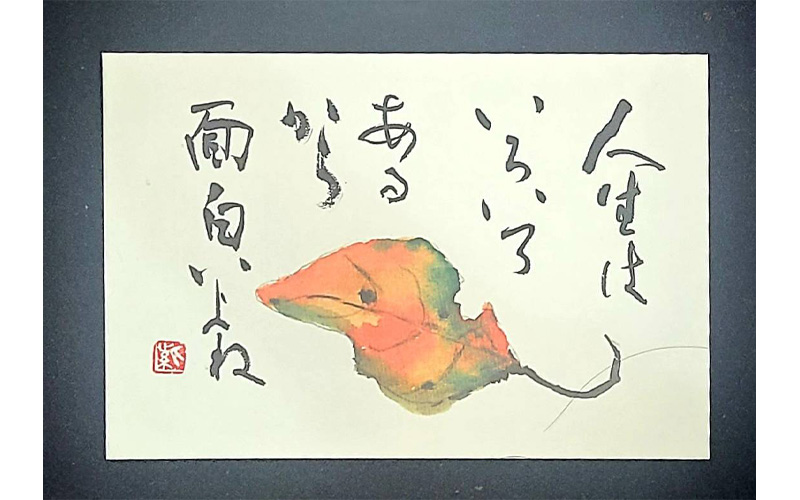 人生は
いろいろ
ある
から
面白いよね